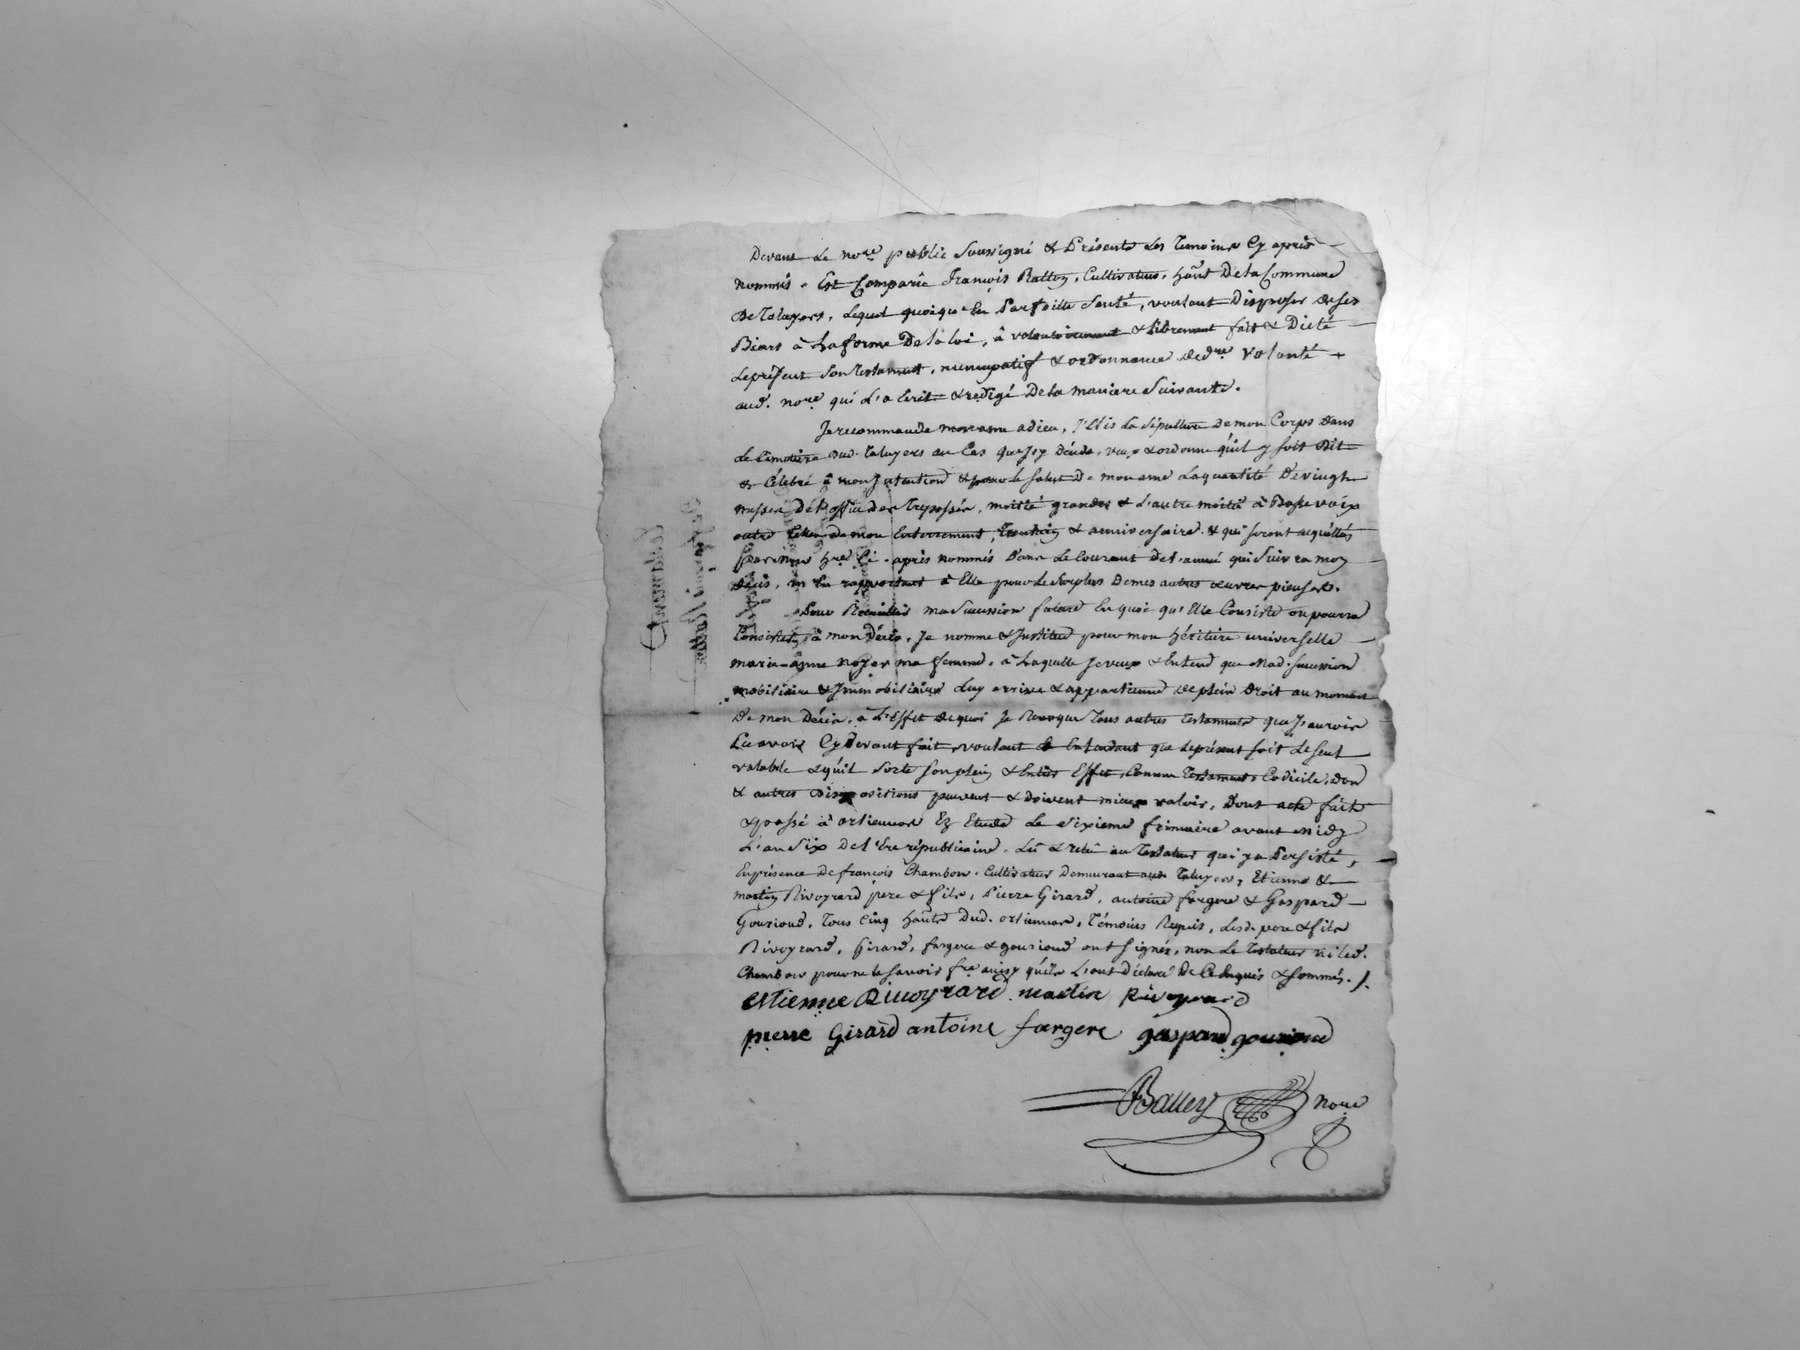 Devant le no.re public soussigné & Présents les Temoins Cy après
nommés. Est Comparû François Ratton, Cultivateur, hãnt De la Commune
de Taluyers, Lequel quoique En Parfaitte Santé, voulant Disposer de ses
Biens à La forme De la loi, à volontairement & librement fait & Dicté
Le présent Son Testament, nuncupatif & ordonnance de d.re volonté
aud. no.re qui L'a Ecrit & redigé De la maniere Suivante.
Je recommande mon ame a dieu, J'Elis La sépulture De mon Corps dans
Le Cimetiere dud. Taluyers au Cas que J'y Décéde, veux & ordonne qu'il y soit Dit
& Célébré à mon Intention & pour le salut De mon ame La quantité De vingt
messes De l'office des Trepassés, moitié grandes & L'autre moitié à Basse voix
outre Celles de mon Enterrement, & anniversaire. & qui seront acquittées
par mon h.re Ci-après nommés Dans Le Courant De l'année qui suivra mon
décès, m'En rapportant à Elle pour Le Surplus De mes autres œuvres pieuses.
Pour Recueillir ma Succession future En quoi qu'Elle Consiste ou pourra
Consister à mon Décès, Je nomme & Institue pour mon héritière universelle
marie anne noyer ma femme, à Laquelle Je veux & Entend que Mad. succession
mobiliaire & Immobiliaire Luy arrive & appartienne de plein Droit au moment
De mon Décès, à L'Effet de quoi Je Revoque Tous autres Testaments que J'aurois
Cy Devant fait, voulant & Entendant que Le présent soit Le seul
valable & qu'il Sorte son plein & Entier Effet, Comme Testament, Codicile, Don
& autres Dispositions peuvent & doivent mieux valoir, Dont acte fait
& passé à orlienas Ez Etude Le Sixieme frimaire avant midy
L'an Six De l'Ere républicaine. Lû & relû au Testateur qui y a Persisté,
En présence de françois Chambon, Cultivateur Demeurant aud. Taluyers, Etienne &
martin Rivoyrard père & fils, Pierre Girard, antoine fargere & Gaspard
Gourioud, Tous Cinq hãnts Dud. orlienas, Témoins Requis, Lesd. pere & fils
Rivoyrard, Girard, fargere & gourioud ont signés, non Le Testateur ni led.
Chambon pour ne le savoir f.re ainsy qu'ils L'ont Déclaré De Ce Enquis & Sommés. /.
etienne Rivoyrard martin Rivoyrard
pierre Girard antoine fargere gaspard gourioud
Balley no.re